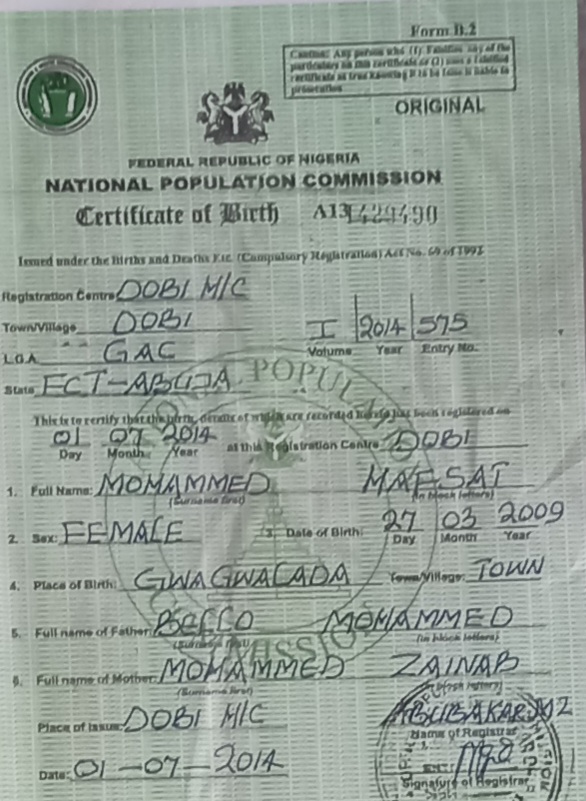 Form B.2
Caution: Any person who (1) Falsifies any of the
particulars on this certificate or (2) uses a falsified
certificate as true knowing it to be false is liable to
prosecution
ORIGINAL
FEDERAL REPUBLIC OF NIGERIA
NATIONAL POPULATION COMMISSION
Certificate of Birth A13
Issued under the Births and Deaths Etc. (Compulsory Registration) Act No. 69 of 1992
Registration Centre DOBI M/C
Town/Village DOBI
I 2014 575
Volume Year Entry No.
L.G.A. GAC
State FCT-ABUJA
This is to certify that the birth, details of which are recorded herein has been registered on
01 07 2014 at this Registration Centre DOBI
Day Month Year
1. Full Name: MOHAMMED MAFSAT
(Surname first) (in block letters)
2. Sex: FEMALE 3. Date of Birth: 27 03 2009
Day Month Year
4. Place of Birth: GWAGWALADA Town/Village: TOWN
5. Full name of Father: BELLO MOHAMMED
(Surname first) (in block letters)
6. Full name of Mother: MOHAMMED ZAINAB
(Surname first) (in block letters)
Place of Issue: DOBI M/C ABUBAKAR
Name of Registrar
Date: 01-07-2014
Signature of Registrar